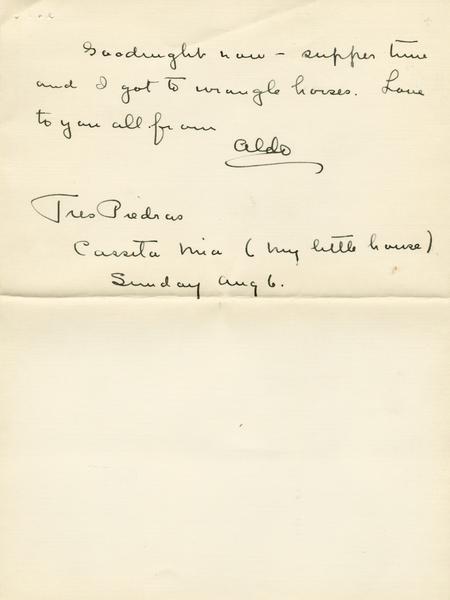 Goodnight now - supper time
and I got to wrangle horses. Love
to you all from
Aldo
Tres Piedras
Cassita Mia (my little house)
Sunday Aug 6.